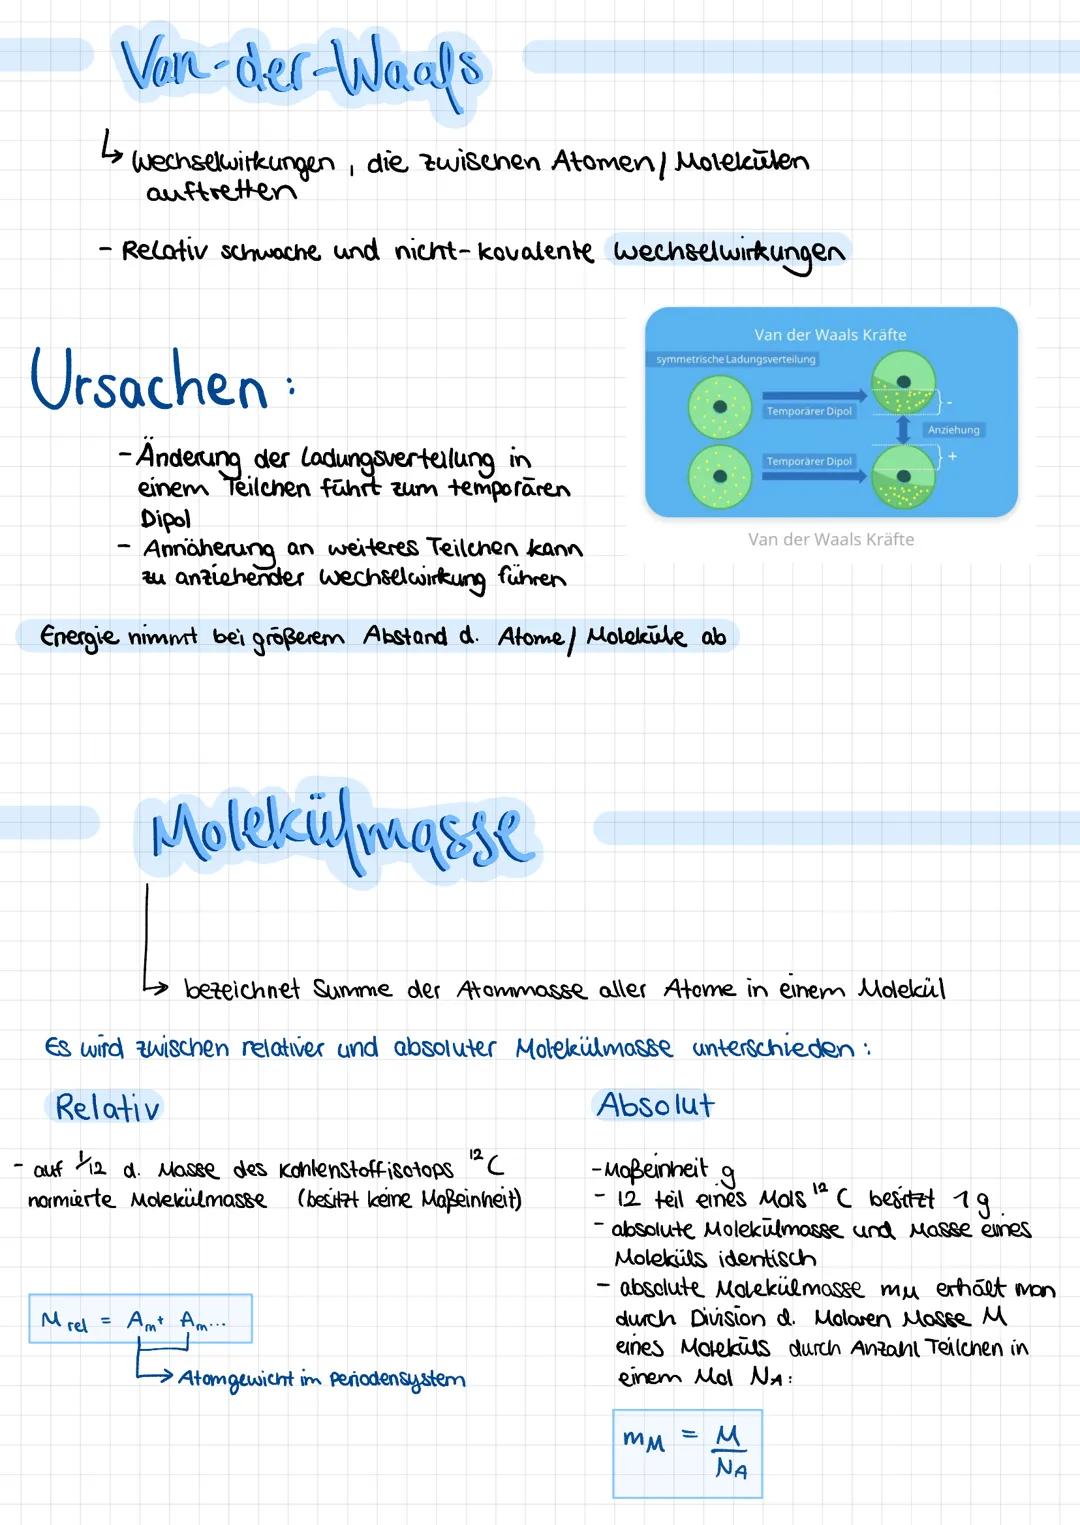 Van-der-Waals
↳ Wechselwirkungen, die zwischen Atomen/Molekülen
auftretten
- Relativ schwache und nicht-kovalente Wechselwirkungen
Ursachen:
Van der Waals Kräfte
symmetrische Ladungsverteilung
Temporärer Dipol
-
Anziehung
Temporärer Dipol
+
Van der Waals Kräfte
- Änderung der Ladungsverteilung in
einem Teilchen führt zum temporären
Dipol
- Annäherung an weiteres Teilchen kann
zu anziehender Wechselwirkung führen
Energie nimmt bei größerem Abstand d. Atome/Moleküle ab
Molekülmasse
↳ bezeichnet Summe der Atommasse aller Atome in einem Molekül
Es wird zwischen relativer und absoluter Molekülmasse unterschieden:
Relativ
- auf 1/12 d. Masse des Kohlenstoffisotops ¹²C
normierte Molekülmasse (besitzt keine Maßeinheit)
M rel = Am + Am...
→ Atomgewicht im Periodensystem
Absolut
- Maßeinheit g
- 12 teil eines Mols ¹²C besitzt 1g
- absolute Molekülmasse und Masse eines
Moleküls identisch
- absolute Molekülmasse mM erhält man
durch Division d. Molaren Masse M
eines Moleküls durch Anzahl Teilchen in
einem Mol NA:
mM = M
NA